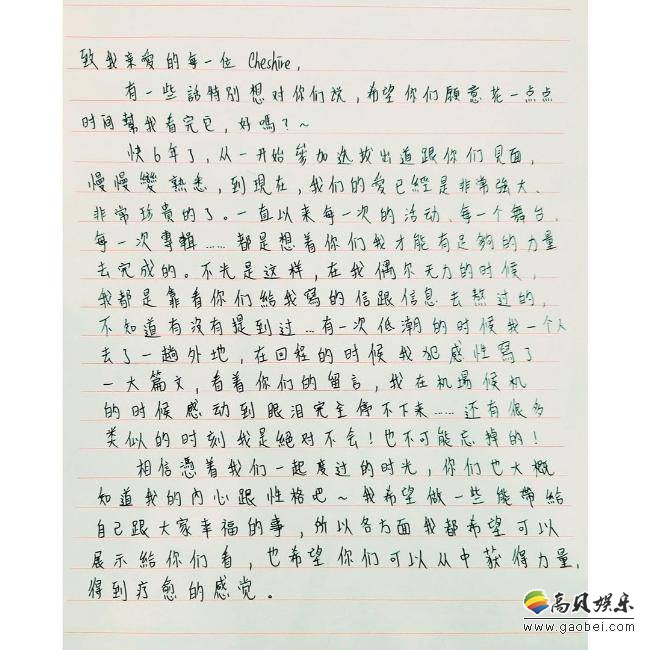 致我亲爱的每一位 Cheshire,
有一些話特别想对你们说，希望你们願意花一点点
时间幫我看完它，好嗎？~
快6年了，从一开始參加选拔出道跟你们見面，
慢慢變熟悉，到現在，我们的爱已經是非常強大、
非常珍貴的了。一直以来每一次的活动、每一个舞台、
每一次專輯……都是想着你们我才能有足夠的力量
去完成的。不光是这样，在我偶尔无力的时候，
我都是靠着你们給我寫的信跟信息去熬过的，
不知道有沒有提到过…有一次低潮的时候我一个人
去了一趟外地，在回程的时候我犯感性寫了
一大篇文，看着你们的留言，我在机場候机
的时候感动到眼泪完全停不下来……还有很多
类似的时刻我是絕对不会！也不可能忘掉的！
相信憑着我们一起度过的时光，你们也大概
知道我的内心跟性格吧~我希望做一些能帶給
自己跟大家幸福的事，所以各方面我都希望可以
展示給你们看，也希望你们可以从中获得力量，
得到疗愈的感觉。
高贝娱乐
www.gaobei.com